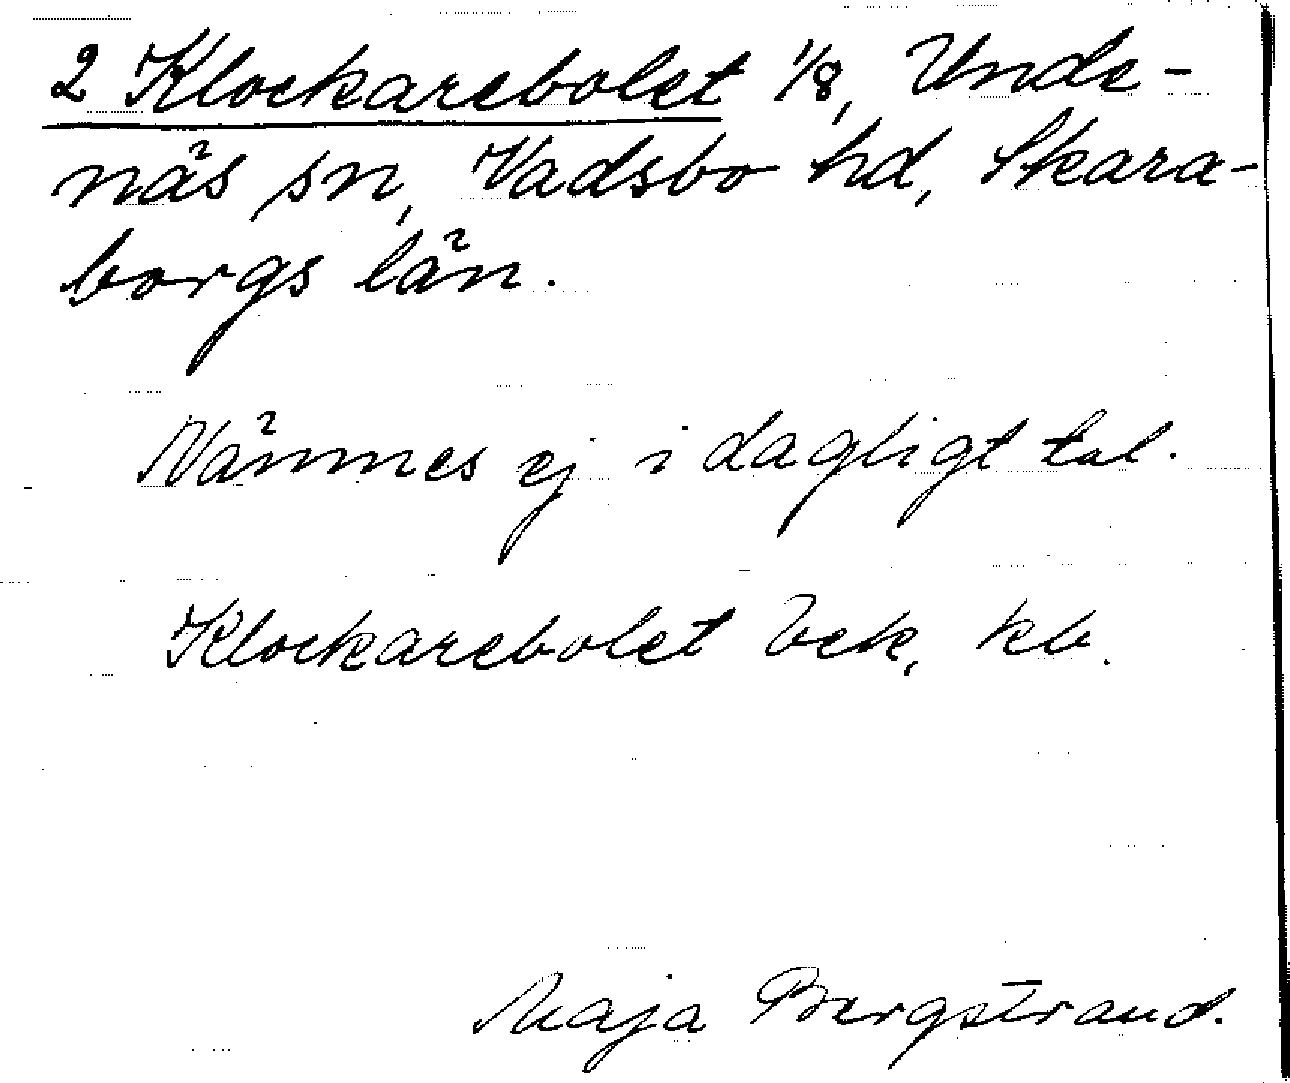 2 Klockarebolet 1/8, Unde-
näs sn, Vadsbo hd, Skara-
borgs län.
Nämnes ej i dagligt tal.
Klockarebolet Eck, kb.
Maja Bergstrand.